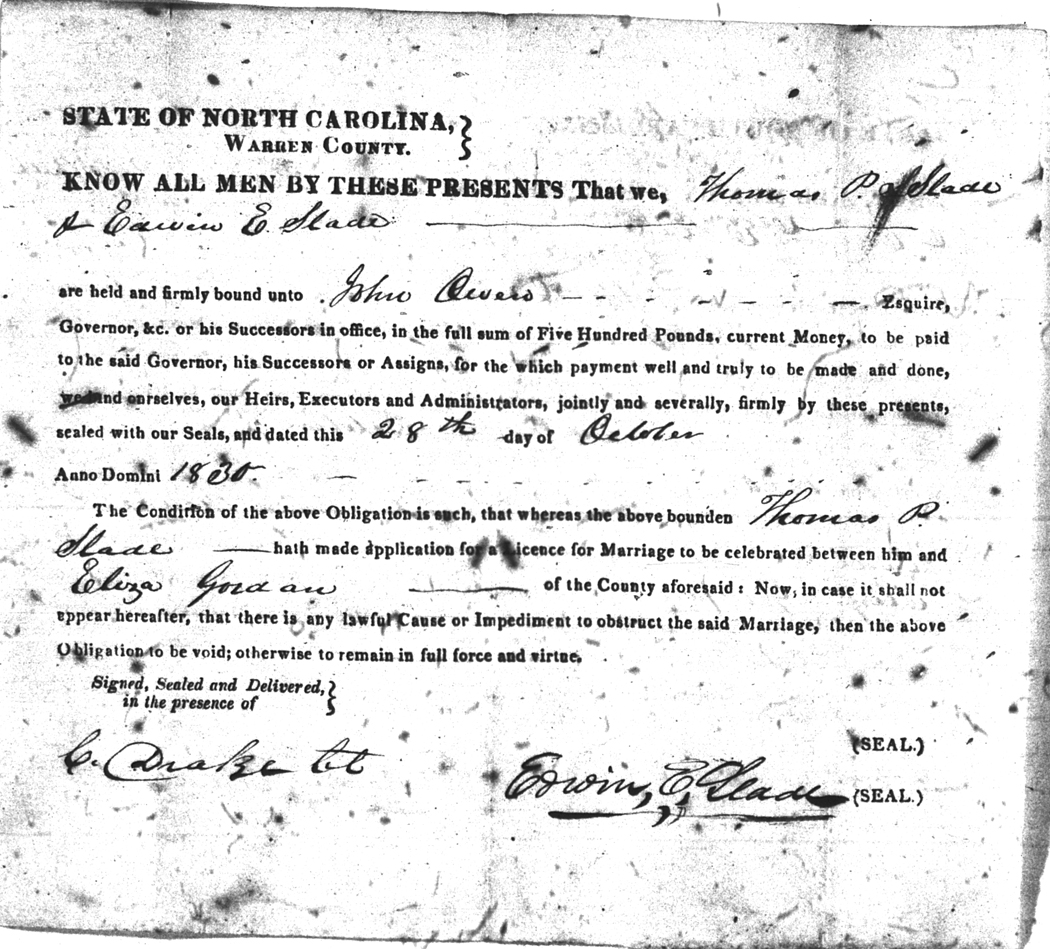 STATE OF NORTH CAROLINA,
WARREN COUNTY.
KNOW ALL MEN BY THESE PRESENTS That we, Thomas P. Slade
& Edwin E. Slade
are held and firmly bound unto John Owen Esquire,
Governor, &c. or his Successors in office, in the full sum of Five Hundred Pounds, current Money, to be paid
to the said Governor, his Successors or Assigns, for the which payment well and truly to be made and done,
we bind ourselves, our Heirs, Executors and Administrators, jointly and severally, firmly by these presents,
sealed with our Seals, and dated this 28th day of October
Anno Domini 1830.
The Condition of the above Obligation is such, that whereas the above bounden Thomas P.
Slade hath made application for a Licence for Marriage to be celebrated between him and
Eliza Gordan of the County aforesaid: Now, in case it shall not
appear hereafter, that there is any lawful Cause or Impediment to obstruct the said Marriage, then the above
Obligation to be void; otherwise to remain in full force and virtue.
Signed, Sealed and Delivered,
in the presence of
(SEAL.)
C. Drake
Edwin E. Slade (SEAL.)